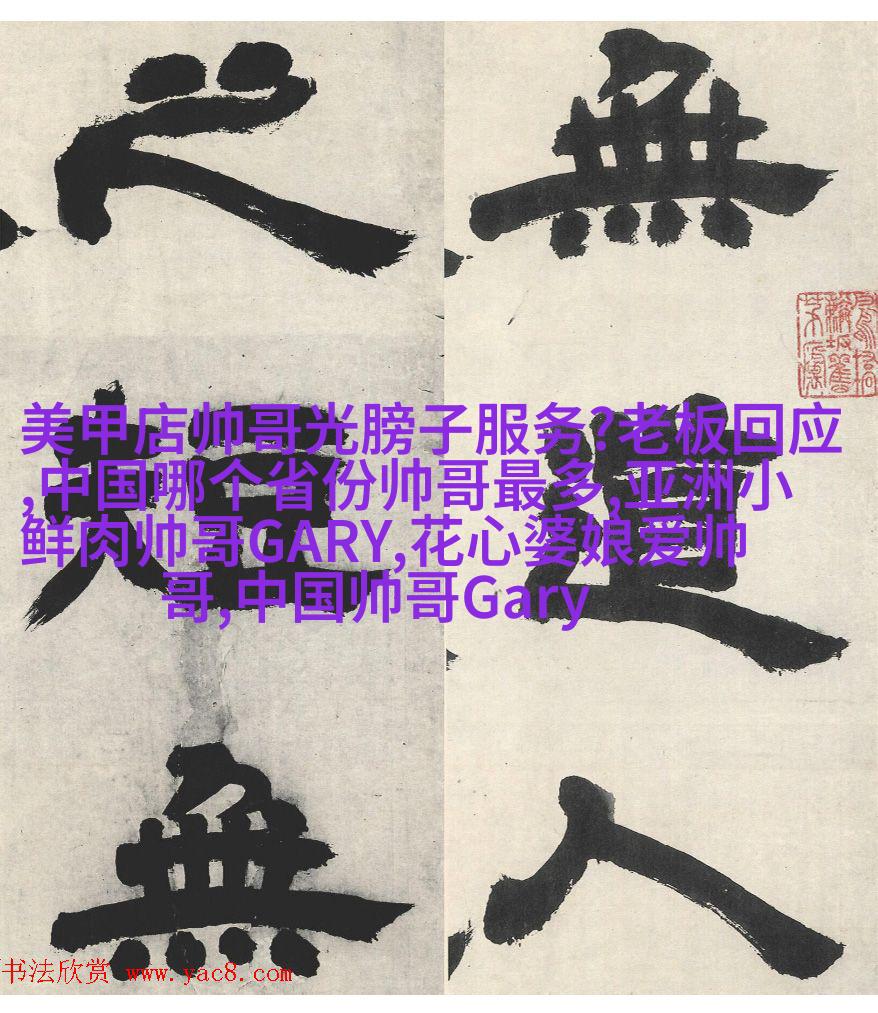 無道人
之短無
美甲店帅哥光膀子服务?老板回应
,中国哪个省份帅哥最多,亚洲小
鲜肉帅哥GARY,花心婆娘爱帅
哥,中国帅哥Gary
书法欣赏 www.yac8.com